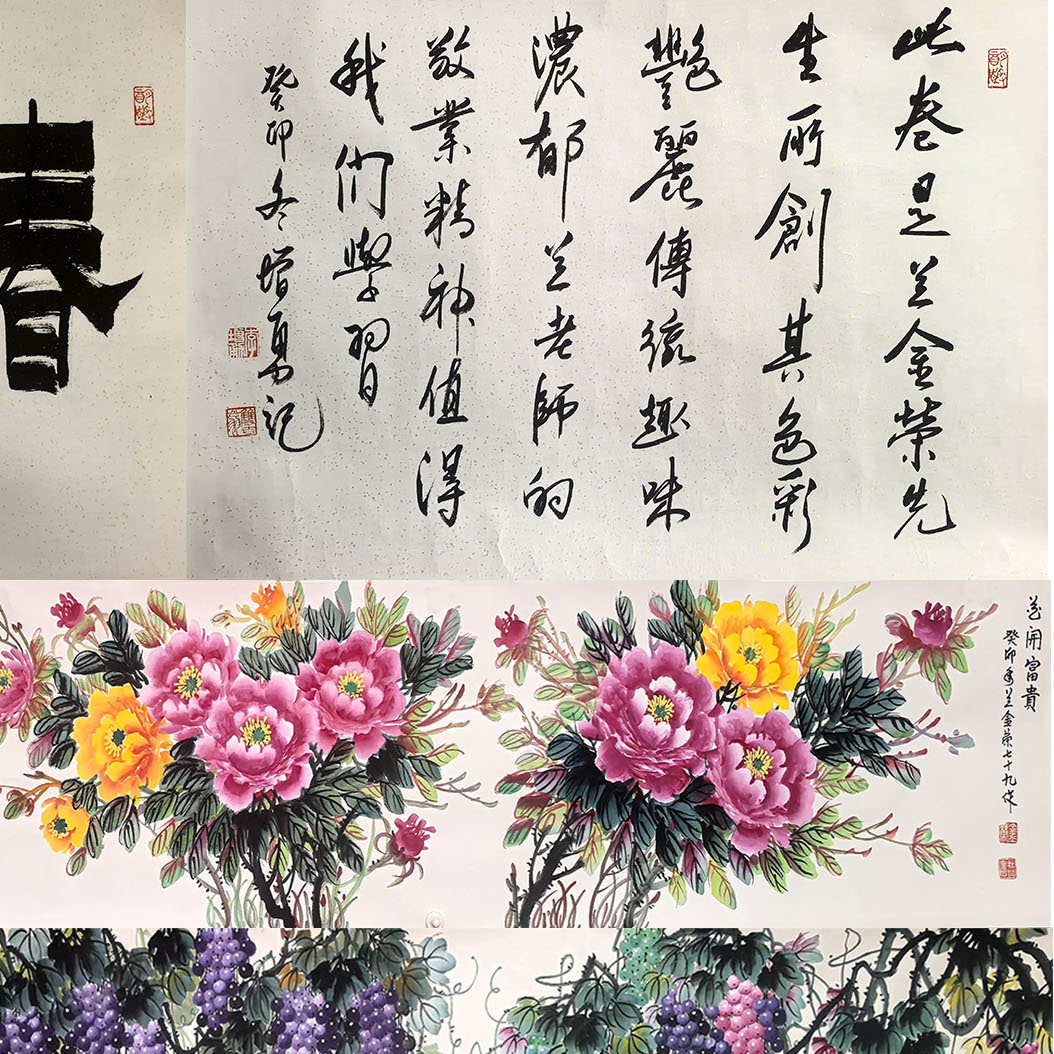 此卷是兰金荣先
生所創其色彩
艷麗傳統趣味
濃郁兰老師的
敬業精神值得
我們學習
癸卯冬增勇記
春
花開富貴
癸卯年兰金荣七十九作